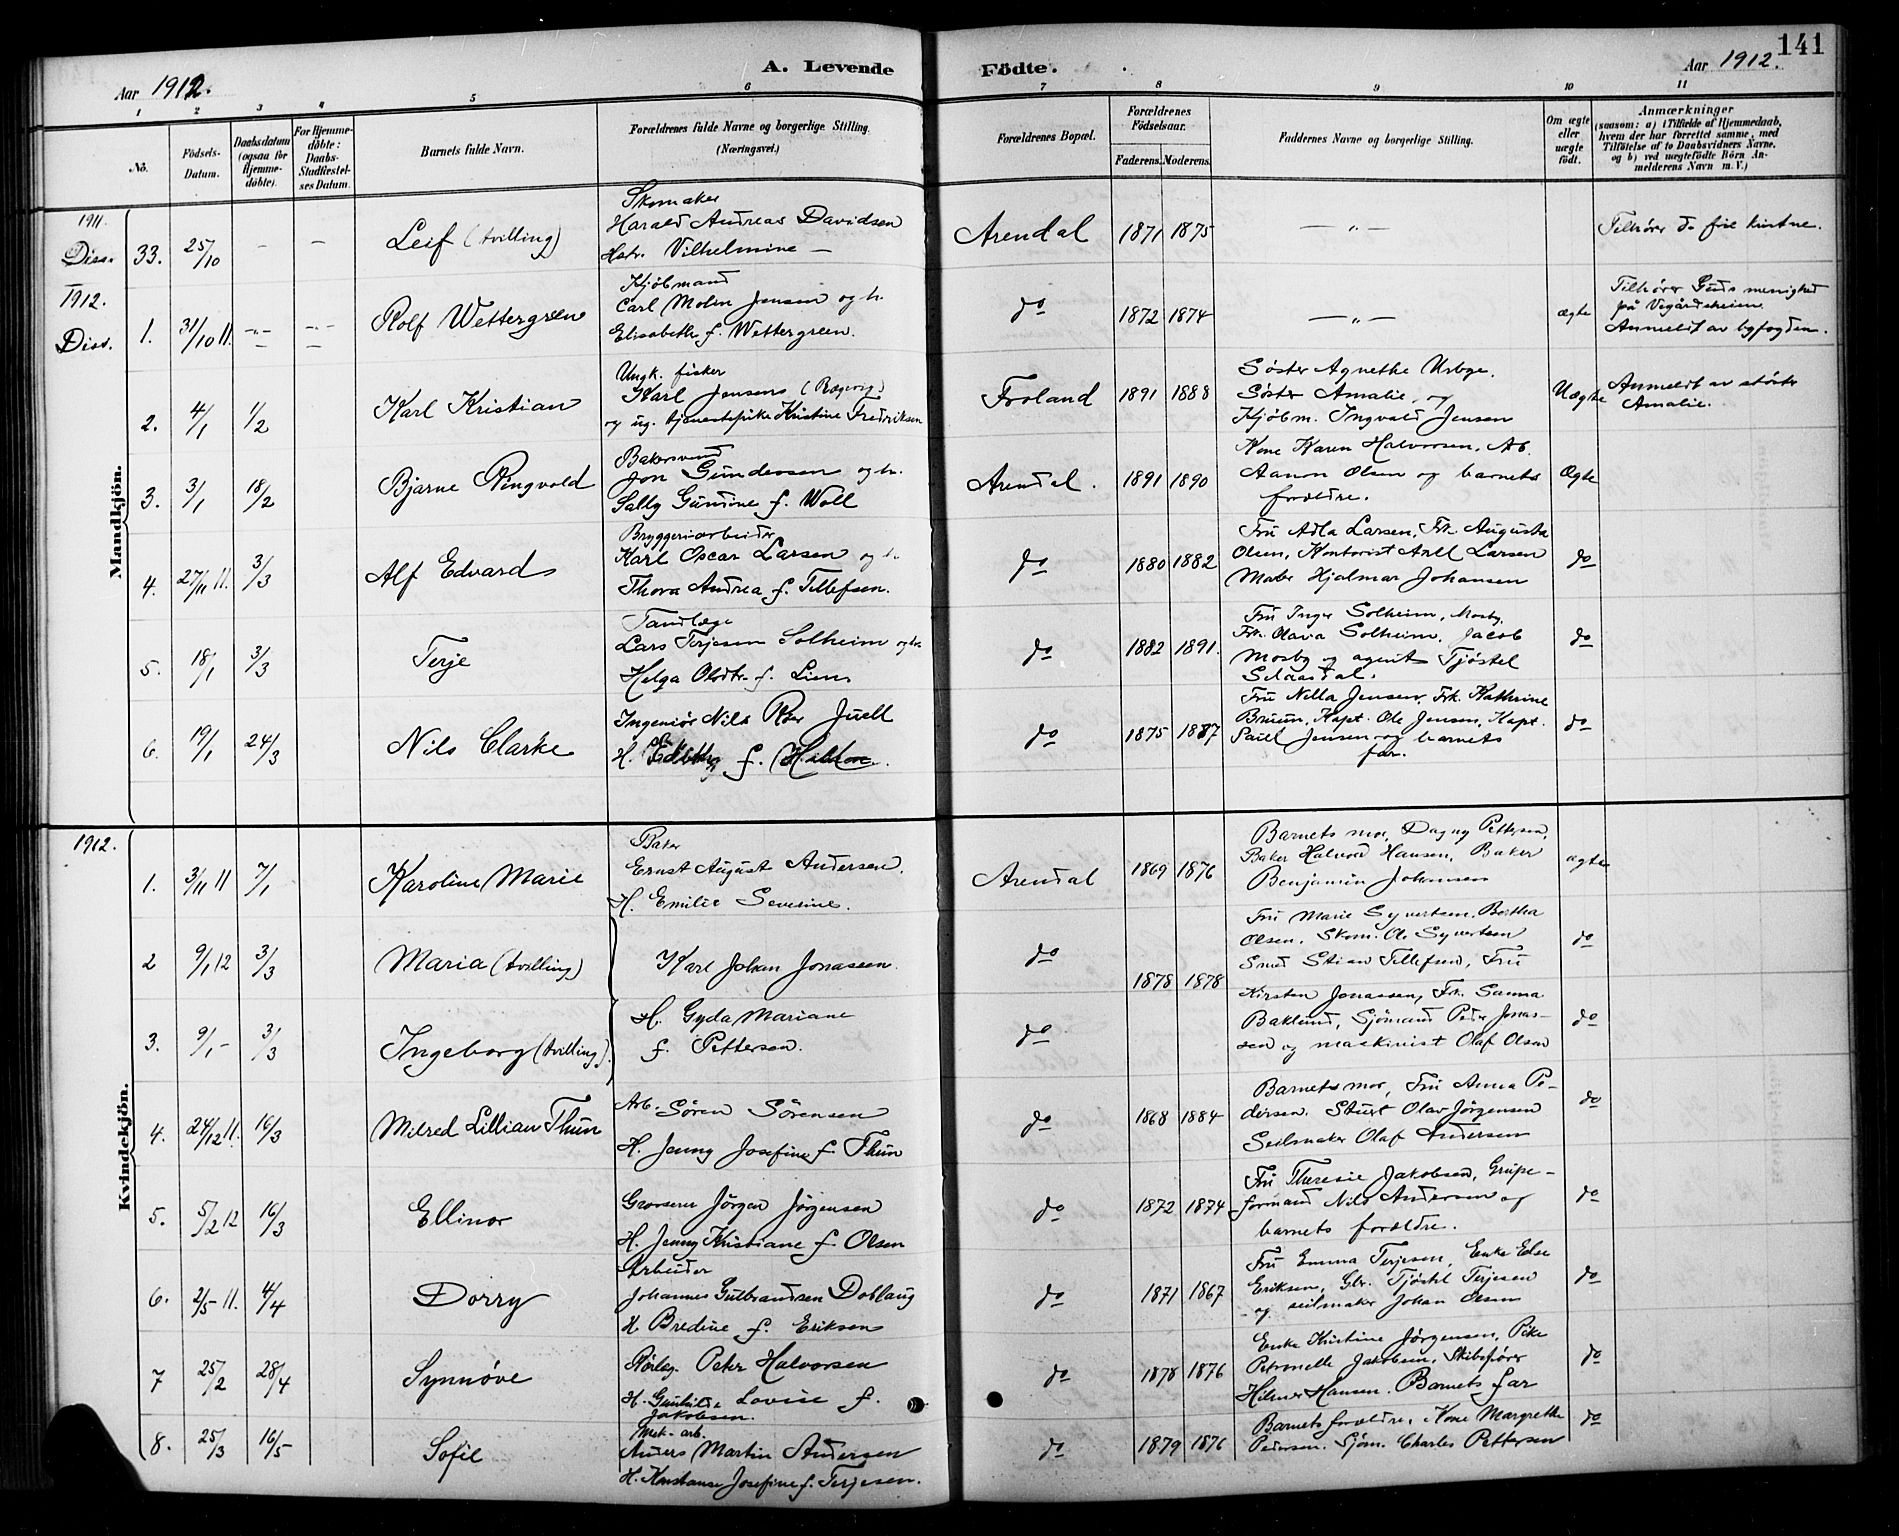 141
Aar 1912. A. Levende Födte. Aar 1912.
1 2 3 4 5 6 7 8 9 10 11
No.
Födsels-
Datum.
Daabsdatum
(ogsaa for
Hjemme-
döbte).
For Hjemme-
döbte:
Daabs-
Stadfæstel-
ses Datum.
Barnets fulde Navn.
Forældrenes fulde Navne og borgerlige Stilling.
(Næringsvei.)
Forældrenes Bopæl.
Forældrenes
Födselsaar.
Faderens. Moderens.
Faddernes Navne og borgerlige Stilling.
Om ægte
eller
uægte
født.
Anmærkninger
(saasom: a) i Tilfælde af Hjemmedaab,
hvem der har forrettet samme, med
Tilföielse af to Daabsvidners Navne,
og b) ved uægtefödte Börn An-
melderens Navn m. V.)
Mandkjön.
1911.
Diss. 33. 25/10 – – Leif (tvilling)
Skomaker
Harald Andreas Davidsen
Hstr. Vilhelmine –
Arendal 1871 1875 — „ —
Tilhører de frie kristne.
1912.
Diss. 1. 31/10 11. Rolf Wettergreen
Kjøbmand
Carl Molin Jensen og h.
Elisabeth f. Wettergreen.
do 1872 1874 — „ — ægte
Tilhører Guds menighed
på Vegårdsheien
Anmeldt av byfogden.
2. 4/1 1/2 Karl Kristian
Ungk. fisker
Karl Jensen (Rægevig)
og ug. tjenestepike Kristine Fredriksen
Froland 1891 1888
Søster Agnethe Usbye.
Søster Amalie, og
Kjøbm. Ingvald Jensen
Uægte
Anmeldt av søster
Amalie.
3. 3/1 18/2 Bjarne Ringvold
Bakersvend
Jon Gundersen og h.
Sally Gundine f. Woll
Arendal. 1891 1890
Kone Karen Halvorsen, Ab.
Aanon Olsen og barnets
forældre.
Ægte
4. 27/11 11. 3/3 Alf Edvard
Bryggeriarbeider
Karl Oscar Larsen og h.
Thora Andrea f. Tellefsen.
do 1880 1882
Fru Adla Larsen, Frk. Augusta
Olsen, Kontorist Larsen
Maler Hjalmar Johansen
do
5. 18/1 3/3 Terje
Tandlæge
Lars Terjesen Solheim og h.
Helga f. Lien
do 1882 1891.
Fru Inger Solheim, Mosby,
Frk. Olava Solheim, Jacob
Mosby og agent Tjøstel
do
6. 19/1 24/3 Nils Clarke
Ingeniør Nils Juell
H. f.
do 1875 1887
Fru Nilla Jensen, Frk. Kathrine
Bruun, Kapt. Ole Jensen, Kapt.
Paul Jensen og barnets
far.
do
Kvindekjön.
1912.
1. 3/11 11 7/1 Karoline Marie
Baker
Ernst August Andersen.
H. Emilie Severine.
Arendal 1869 1876
Barnets mor, Dagny Pettersen,
Baker Halvod Hansen, Baker
Benjamin Johansen
ægte
2 9/1 12 3/3 Maria (tvilling)
Karl Johan Jonassen.
do 1878 1878
Fru Marie Syvertsen, Bertha
Olsen, Skom. Ole Syvertsen
Smed Stian Tellefsen, Fru
do
3. 9/1 – 3/3 Ingeborg (tvilling)
H. Gyda Mariane
f. Pettersen.
do
Kirsten Jonassen, Frk. Sanna
Baklund, Sjømand Peder Jonas-
sen og maskinist Olaf Olsen
do
4. 24/12 11. 16/3 Milred Lillian Thun
Arb. Søren Sørensen
H. Jenny Josefine f. Thun
do 1868 1884
Barnets mor, Fru Anna Pe-
dersen. Stuert Olav Jørgensen
Seilmaker Olaf Andersen
do
5. 5/2 12 16/3 Ellinor
Grosserer Jørgen Jørgensen
H. Jenny Kristiane f. Olsen
do 1872 1874
Fru Theresie Jakobsen, Grube-
formand Nils Andersen og
barnets forældre.
do
6. 2/5 11. 4/4 Dorry
Arbeider
Johannes Gulbrandsen Doblaug
H. Bredine f. Eriksen
do 1871 1867
Fru Emma Terjesen, Enke Else
Eriksen, Gbr. Tjøstel Terjesen
og seilmaker Johan Olsen
do
7 25/2 28/4 Synnøve
Rørleg. Peter Halvorsen
H. Gunhilde Lovise f.
Jakobsen.
do 1878 1876
Enke Kristine Jørgensen, Pike
Petronelle Jakobsen, Skibsfører
Hilmer Hansen. Barnets far
do
8. 25/3 16/5 Sofie
Mek. arb.
Anders Martin Andersen
H. Konstanse Josefine f. Terjesen.
do 1879 1876
Barnets forældre, Kone Margrethe
Pedersen. Sjøm. Charles Pettersen
do